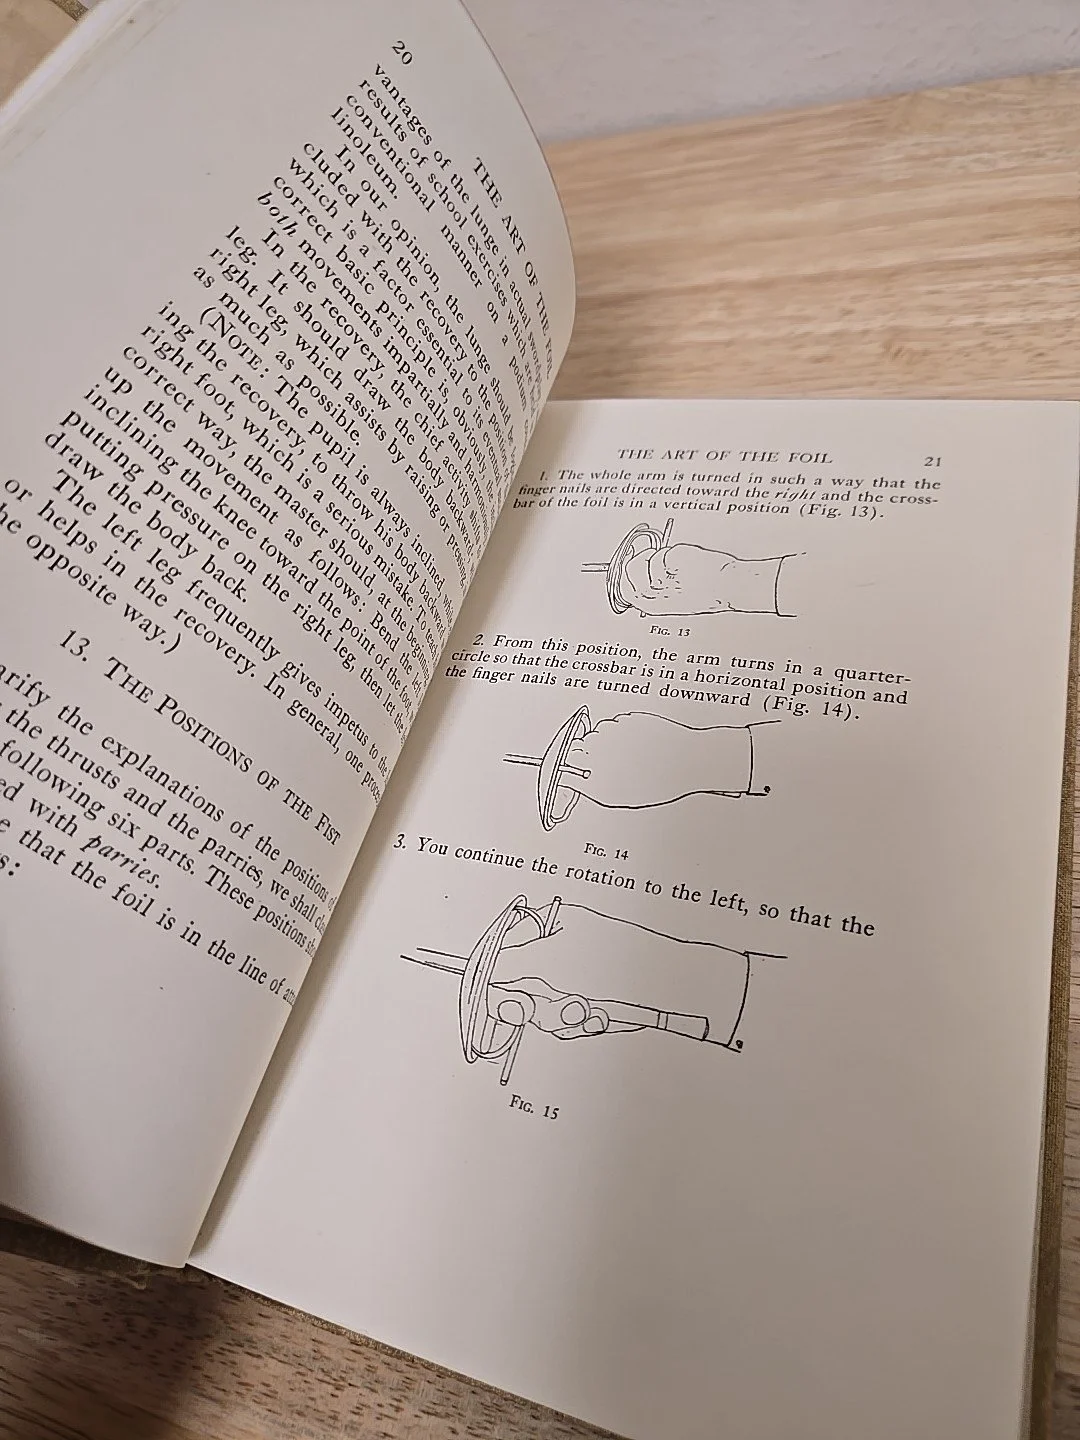 20
THE ART OF THE FOIL
vantages of the lunge in actual
results of school exercises which are
conventional manner on a podium
linoleum.
In our opinion, the lunge should be
cluded with the recovery to the position,
which is a factor essential to its
correct basic principle is, obviously,
both movements impartially and
In the recovery, the chief activity
leg. It should draw the body backward,
right leg, which assists by raising or pressing
as much as possible.
(NOTE: The pupil is always inclined,
ing the recovery, to throw his body backward
right foot, which is a serious mistake. To
correct way, the master should, at the
up the movement as follows: Bend the left
inclining the knee toward the point of the foot,
putting pressure on the right leg, then let the
draw the body back.
The left leg frequently gives impetus to the
or helps in the recovery. In general, one
he opposite way.)
13. THE POSITIONS OF THE FIST
arify the explanations of the positions
the thrusts and the parries, we shall
following six parts. These positions
ed with parries.
e that the foil is in the line of
s:
THE ART OF THE FOIL
21
1. The whole arm is turned in such a way that the
finger nails are directed toward the right and the cross-
bar of the foil is in a vertical position (Fig. 13).
FIG. 13
2. From this position, the arm turns in a quarter-
circle so that the crossbar is in a horizontal position and
the finger nails are turned downward (Fig. 14).
FIG. 14
3. You continue the rotation to the left, so that the
FIG. 15